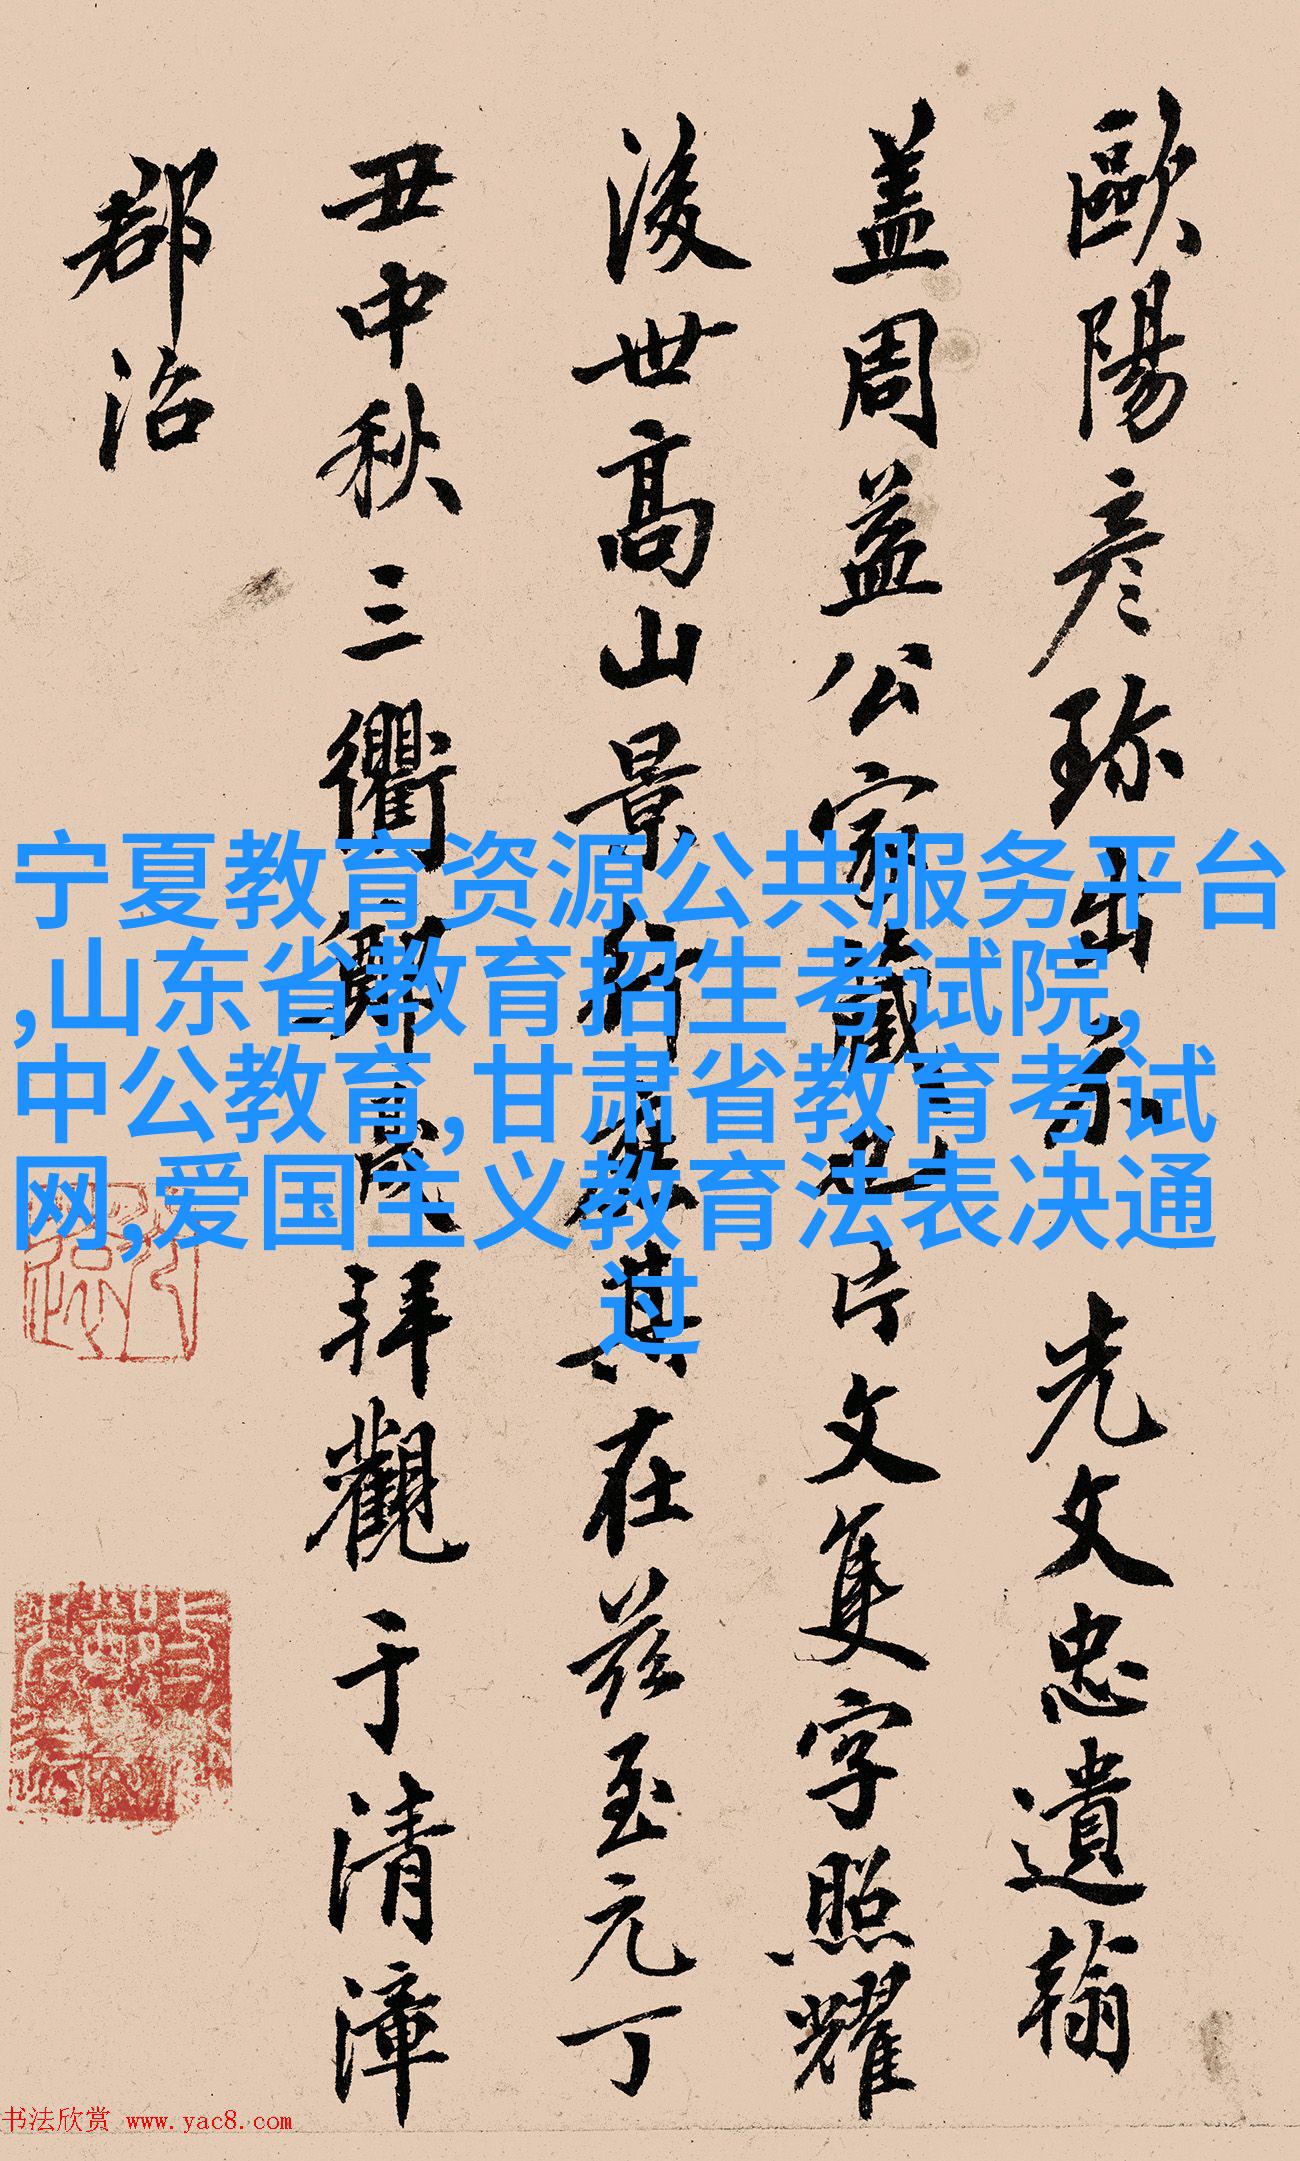 歐陽彦珎出示光文忠遺翰
盖周益公家藏片文隻字照耀
後世高山景行其在兹至元丁
丑中秋三衢鄭拜觀于清漳
郡治
宁夏教育资源公共服务平台
,山东省教育招生考试院,
中公教育,甘肃省教育考试
网,爱国主义教育法表决通
过
书法欣赏 www.yac8.com